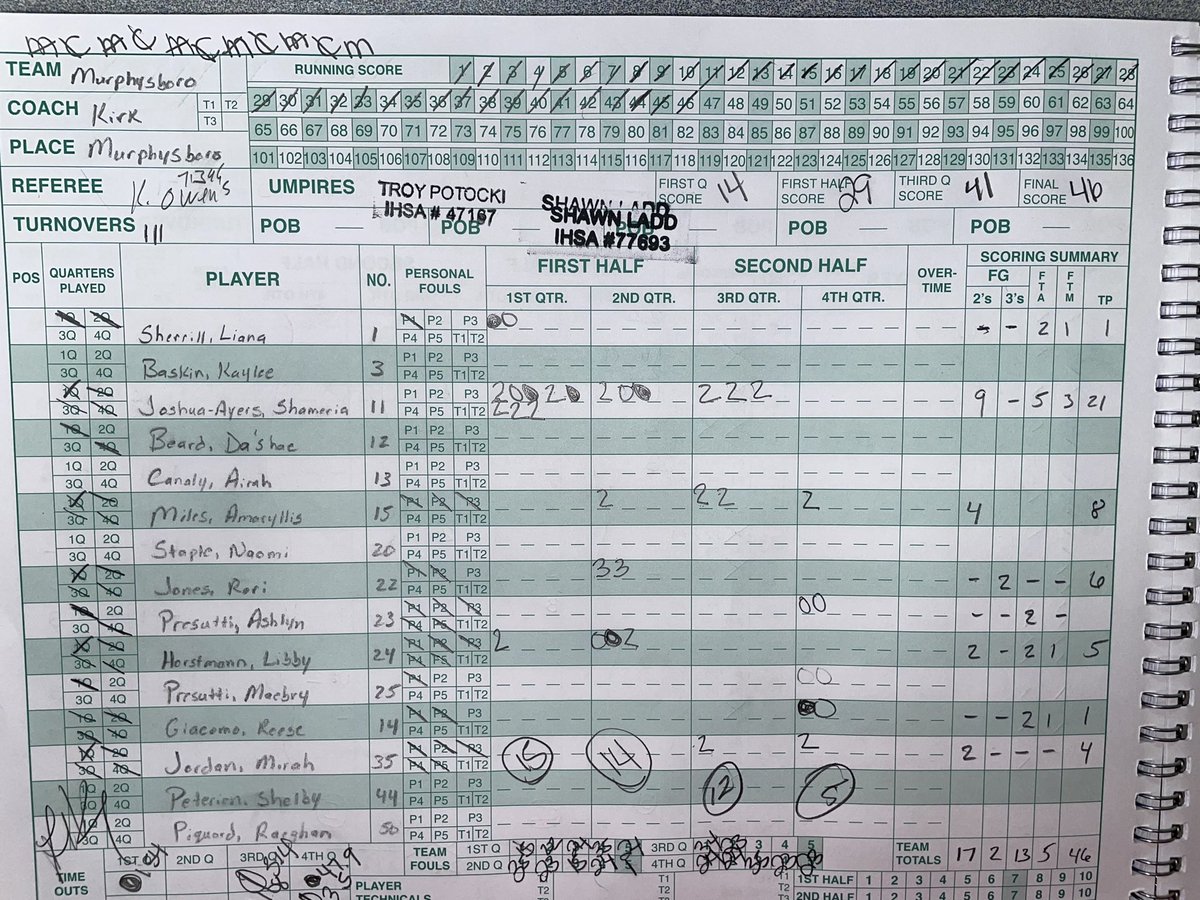 TEAM Murphysboro RUNNING SCORE 1 2 3 4 5 6 7 8 9 10 11 12 13 14 15 16 17 18 19 20 21 22 23 24 25 26 27 28
COACH Kirk T1 T2 T3 29 30 31 32 33 34 35 36 37 38 39 40 41 42 43 44 45 46 47 48 49 50 51 52 53 54 55 56 57 58 59 60 61 62 63 64
65 66 67 68 69 70 71 72 73 74 75 76 77 78 79 80 81 82 83 84 85 86 87 88 89 90 91 92 93 94 95 96 97 98 99 100
PLACE Murphysboro 101 102 103 104 105 106 107 108 109 110 111 112 113 114 115 116 117 118 119 120 121 122 123 124 125 126 127 128 129 130 131 132 133 134 135 136
REFEREE K. Owen's UMPIRES TROY POTOCKI IHSA # 47167 SHAWN LADD SHAWN LADD IHSA #77693 FIRST Q SCORE 14 FIRST HALF SCORE 29 THIRD Q SCORE 41 FINAL SCORE 46
TURNOVERS III POB — POB — POB — POB — POB —
POS QUARTERS PLAYED PLAYER NO. PERSONAL FOULS FIRST HALF SECOND HALF OVER-TIME SCORING SUMMARY
1ST QTR. 2ND QTR. 3RD QTR. 4TH QTR. FG 2's 3's FTA FTM TP
1Q 2Q 3Q 4Q Sherrill, Liana 1 P1 P2 P3 P4 P5 T1 T2 - - 2 1 1
1Q 2Q 3Q 4Q Baskin, Kaylee 3 P1 P2 P3 P4 P5 T1 T2
1Q 2Q 3Q 4Q Joshua-Ayers, Shameria 11 P1 P2 P3 P4 P5 T1 T2 222 9 - 5 3 21
1Q 2Q 3Q 4Q Beard, Da'shae 12 P1 P2 P3 P4 P5 T1 T2
1Q 2Q 3Q 4Q Canaly, Airah 13 P1 P2 P3 P4 P5 T1 T2
1Q 2Q 3Q 4Q Miles, Amaryllis 15 P1 P2 P3 P4 P5 T1 T2 2 22 2 4 8
1Q 2Q 3Q 4Q Staple, Naomi 20 P1 P2 P3 P4 P5 T1 T2
1Q 2Q 3Q 4Q Jones, Rori 22 P1 P2 P3 P4 P5 T1 T2 33 - 2 - - 6
1Q 2Q 3Q 4Q Presutti, Ashlyn 23 P1 P2 P3 P4 P5 T1 T2 00 - - 2 -
1Q 2Q 3Q 4Q Horstmann, Libby 24 P1 P2 P3 P4 P5 T1 T2 2 002 2 - 2 1 5
1Q 2Q 3Q 4Q Presutti, Maebry 25 P1 P2 P3 P4 P5 T1 T2 00
1Q 2Q 3Q 4Q Giacomo, Reese 14 P1 P2 P3 P4 P5 T1 T2 00 - - 2 1 1
1Q 2Q 3Q 4Q Jordan, Mirah 35 P1 P2 P3 P4 P5 T1 T2 15 14 2 2 2 - - - 4
1Q 2Q 3Q 4Q Petersen, Shelby 44 P1 P2 P3 P4 P5 T1 T2 12 5
3Q 4Q Piquard, Raeghan 50 P1 P2 P3 P4 P5 T1 T2
TIME OUTS 1ST Q 2ND Q 3RD 4TH TEAM FOULS 1ST Q 3RD Q 3 4 5 TEAM TOTALS 17 2 13 5 46
2ND Q 4TH Q
PLAYER TECHNICALS T1 T2 T1 T2 T1 T2 1ST HALF 1 2 3 4 5 6 7 8 9 10
2ND HALF 1 2 3 4 5 6 7 8 9 10